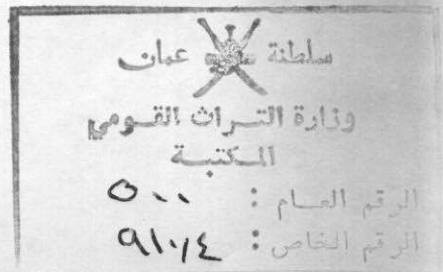 سلطنة عمان
وزارة التراث القومي
المكتبة
الرقم العام : ٥٠٠
الرقم الخاص :